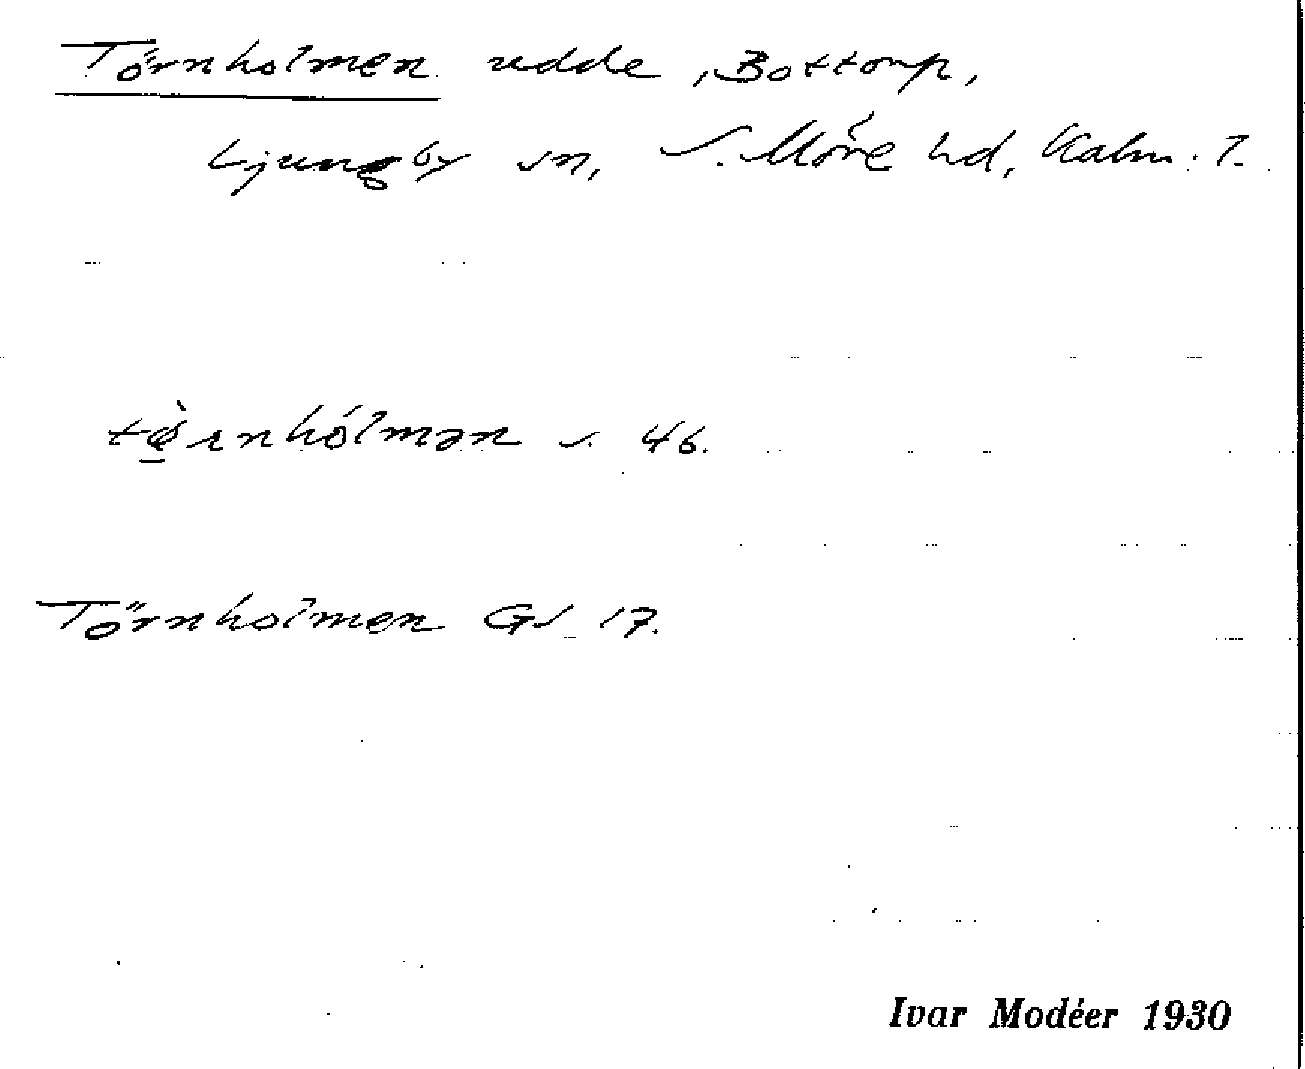 Törnholmen udde, Bottorp,
Ljungby sn, S. Möre hd, Kalm. l.
tö̀rnhólmən s. 46.
Törnholmen GS 17.
Ivar Modéer 1930